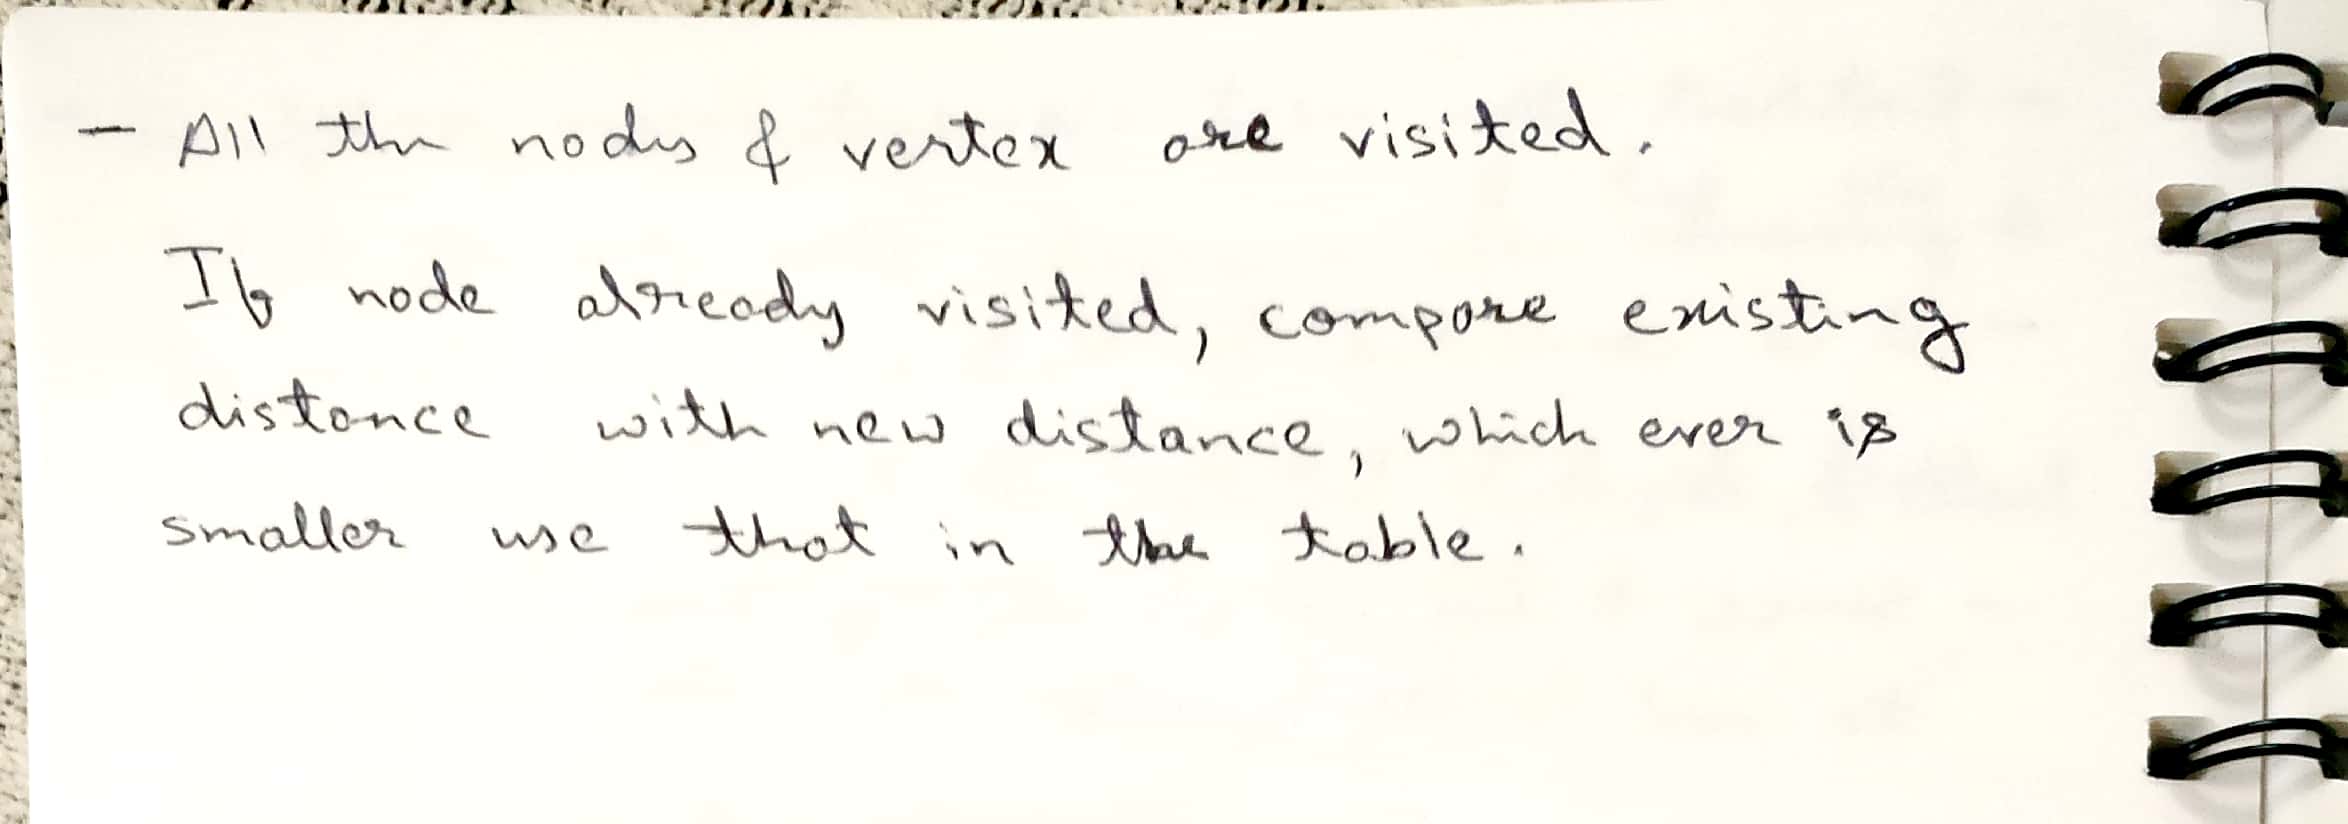 - All the nodes & vertex are visited.
If node already visited, compare existing
distance with new distance, which ever is
smaller use that in the table.